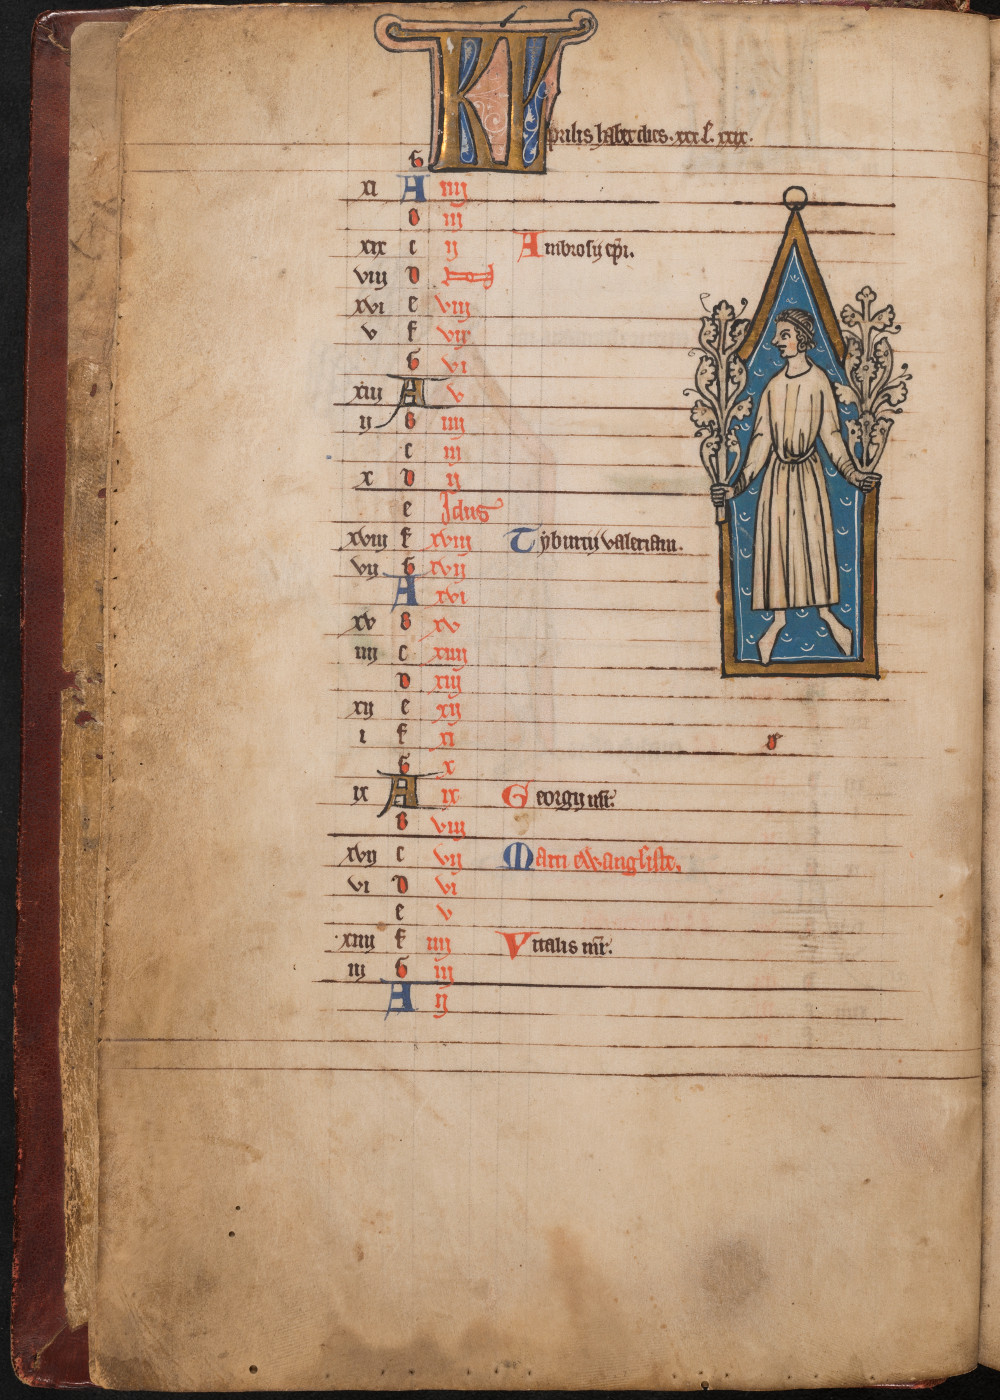 KL prilis habet dies. xxx. L. xxix.
G
xi A iiij
B iij
xix c ij Ambrosij epi.
viij D
xvi e viij
v f vij
G vi
xiij A v
ij B iiij
c iij
x D ij
e Idus
xviij f xviij Tyburtij valeriani.
vij G xvij
A xvi
xv B xv
iiij c xiiij
D xiij
xij e xij
i f xi
G x
ix A ix Georgij mr.
B viij
xvij c vij Marci ewangliste.
vi D vi
e v
xiiij f iiij Vitalis mr.
iij G iij
A ij